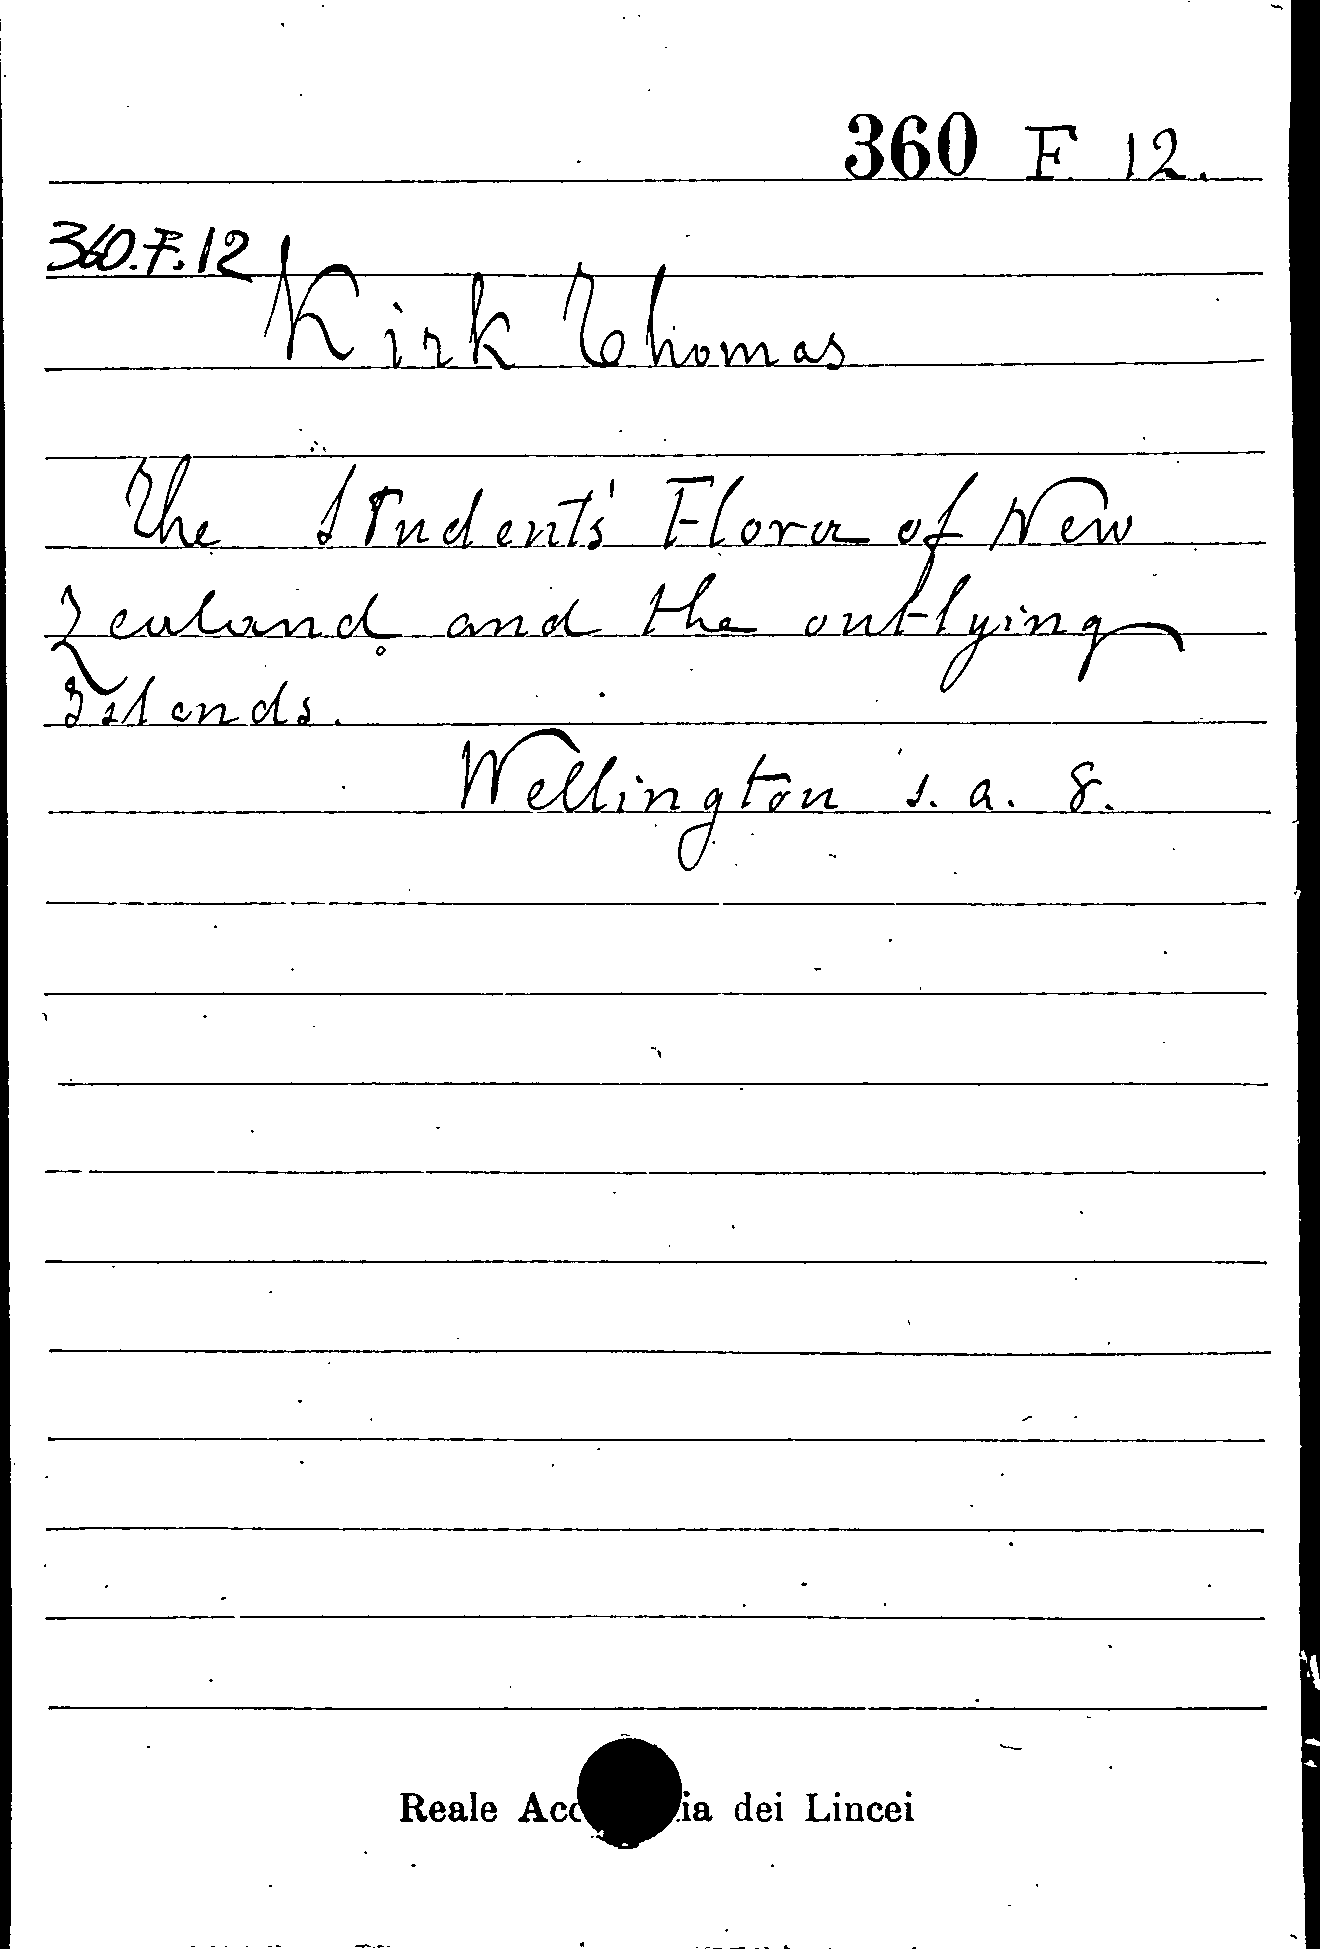 360 F 12.
360.F.12
Kirk Thomas
The Students' Flora of New
Zealand and the outlying
Islands.
Wellington s. a. 8.
Reale Acc ia dei Lincei